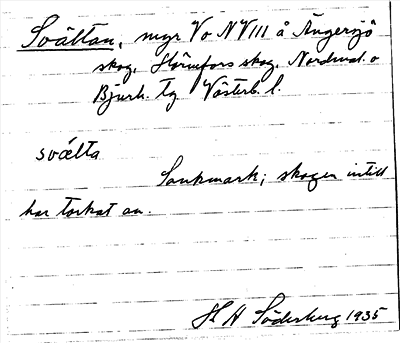 Svältan, myr V o NV III å Ängersjö
skog, Hörnefors skog, Nordmal. o
Bjurh. tg Västerb. l.
svælta
Sankmark; skogen intill
har torkat av.
H H Söderberg 1935